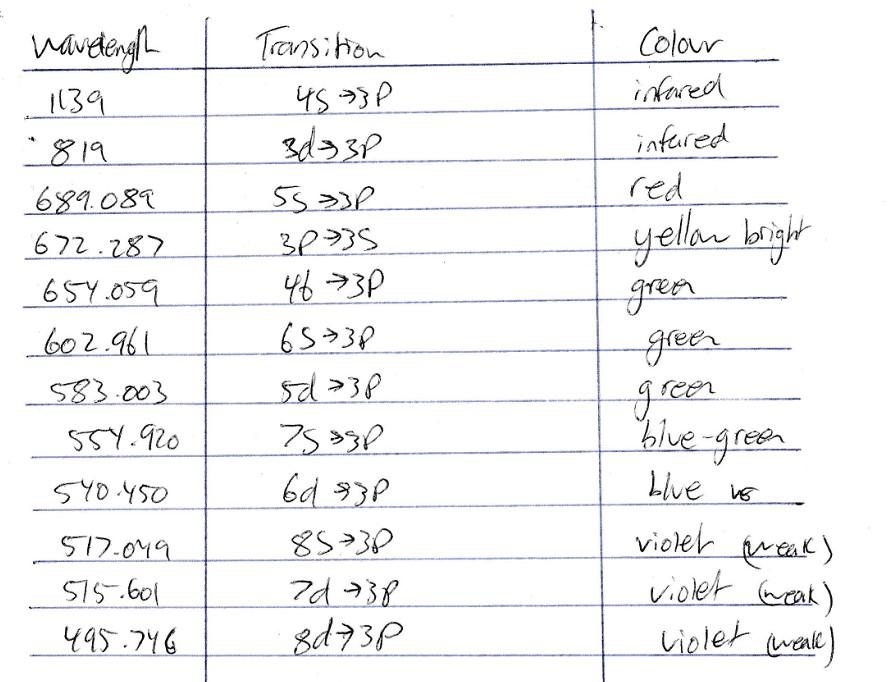 Wavelength Transition Colour
1139 4s→3P infared
819 3d→3P infared
689.089 5s→3P red
672.287 3P→3S yellow bright
654.059 →3P green
602.961 6S→3P green
583.003 5d→3P green
554.920 7S→3P blue-green
540.450 6d→3P blue
517.049 8S→3P violet (weak)
515.601 7d→3P violet (weak)
495.746 8d→3P violet (weak)